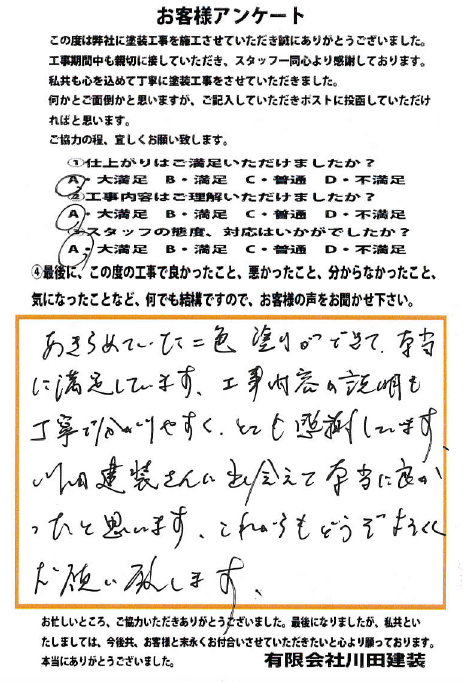 お客様アンケート
この度は弊社に塗装工事を施工させていただき誠にありがとうございました。
工事期間中も親切に接していただき、スタッフ一同心より感謝しております。
私共も心を込めて丁寧に塗装工事をさせていただきました。
何かとご面倒かと思いますが、ご記入していただきポストに投函していただけ
ればと思います。
ご協力の程、宜しくお願い致します。
①仕上がりはご満足いただけましたか？
A・大満足 B・満足 C・普通 D・不満足
②工事内容はご理解いただけましたか？
A・大満足 B・満足 C・普通 D・不満足
スタッフの態度、対応はいかがでしたか？
A・大満足 B・満足 C・普通 D・不満足
④最後に、この度の工事で良かったこと、悪かったこと、分からなかったこと、
気になったことなど、何でも結構ですので、お客様の声をお聞かせ下さい。
あきらめていた二色塗りができて、本当
に満足しています、工事内容の説明も
丁寧で分かりやすく、とても感謝しています、
川田建装さんに出会えて本当に良か
ったと思います、これからもどうぞよろしく
お願い致します、
お忙しいところ、ご協力いただきありがとうございました。最後になりましたが、私共とい
たしましては、今後共、お客様と末永くお付合いさせていただきたいと心より願っております。
本当にありがとうございました。 有限会社川田建装